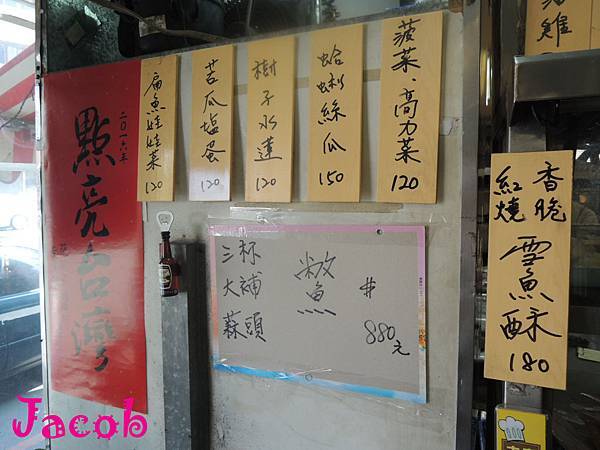 二○一六年
點亮台灣
扁魚娃娃菜
120
苦瓜鹹蛋
120
樹子水蓮
120
蛤蜊絲瓜
150
菠菜、高力菜
120
雞
三杯
大補
蒜頭
魚
#
880元
香脆
紅燒
雪魚酥
180
Jacob